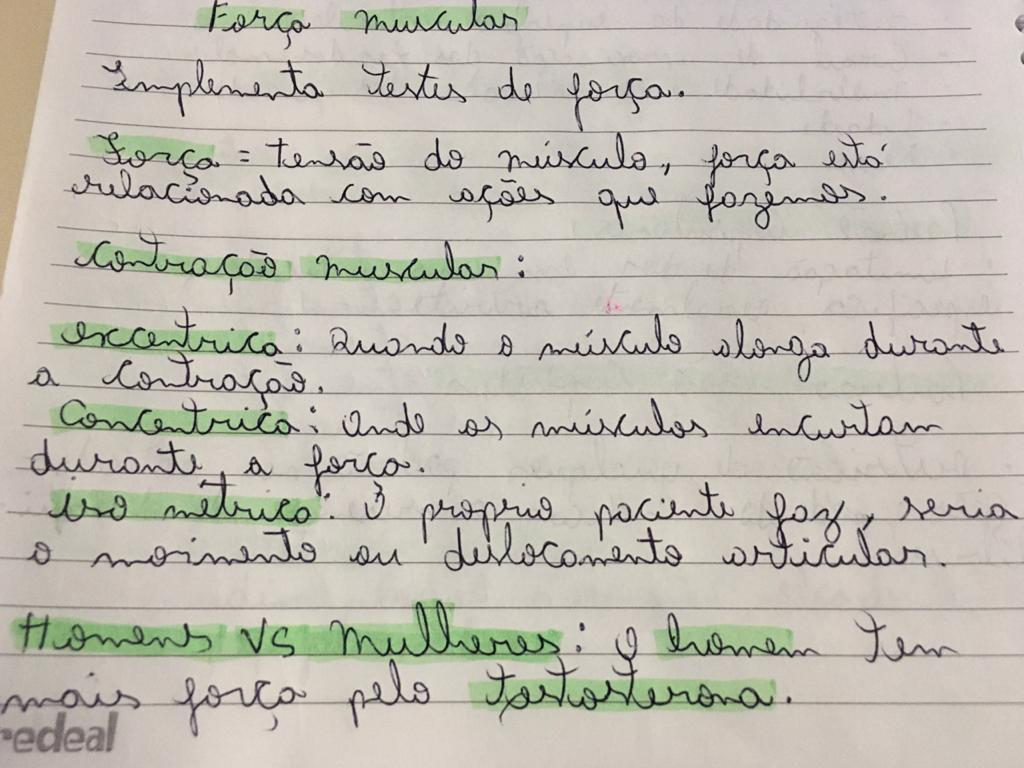 Força muscular
Implementa testes de força.
Força = tensão do músculo, força está
relacionada com ações que fazemos.
Contração muscular:
excentrica: Quando o músculo alonga durante
a contração.
Concentrica: Onde os músculos encurtam
durante a força.
iso métrica: O proprio paciente faz, seria
o moimento ou deslocamento articular.
Homens VS Mulheres: O homem tem
mais força pelo testosterona.
redeal